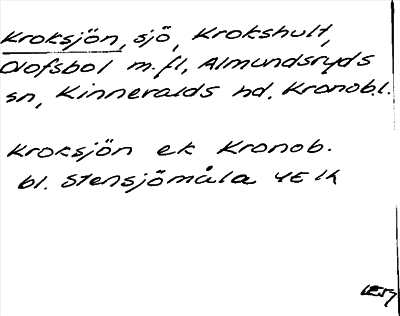 Kroksjön, sjö, Krokshult,
Olofsbol m.fl, Almundsryds
sn, Kinnevalds hd. Kronobl.
Kroksjön ek Kronob.
bl. Stensjömåla 4E lk